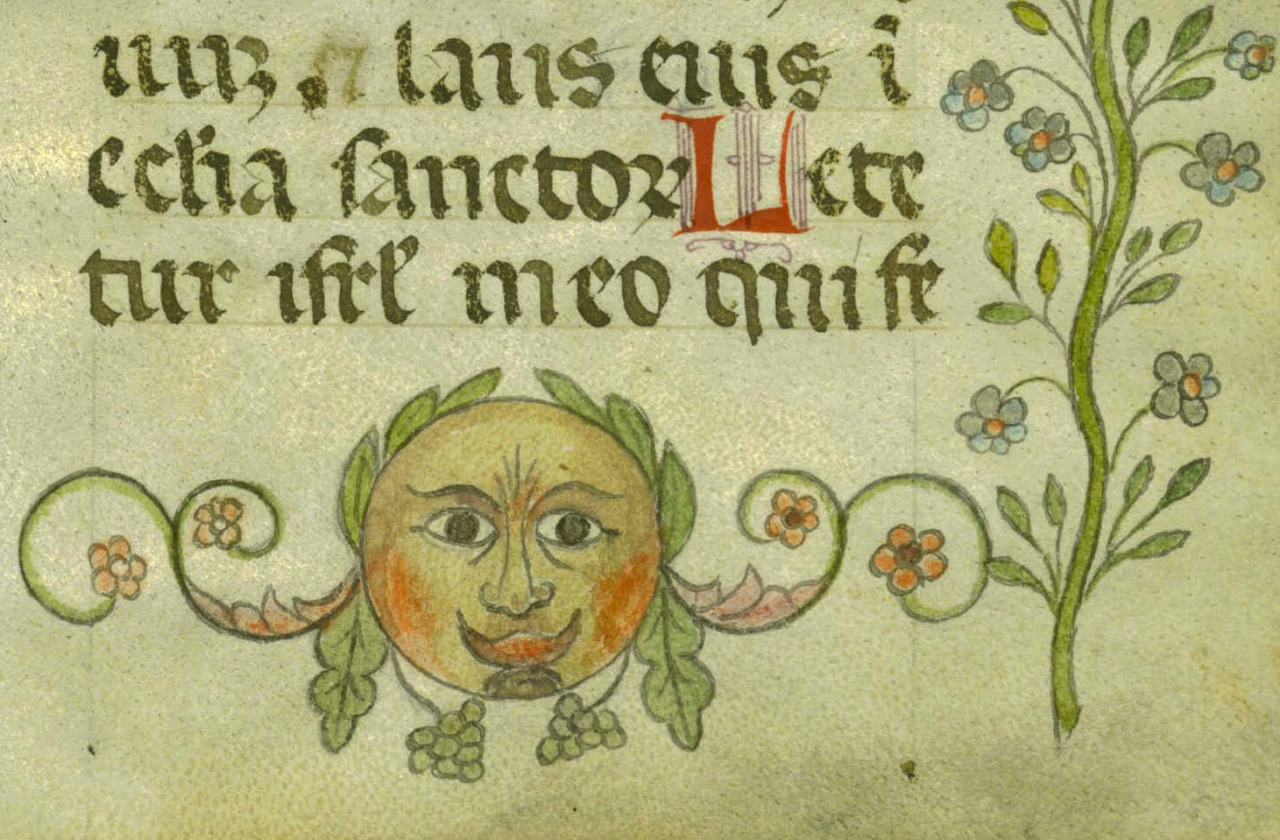 uuꝫ. laus eius i
ecclia sanctoꝝ Lete
tur isrl in eo qui fe